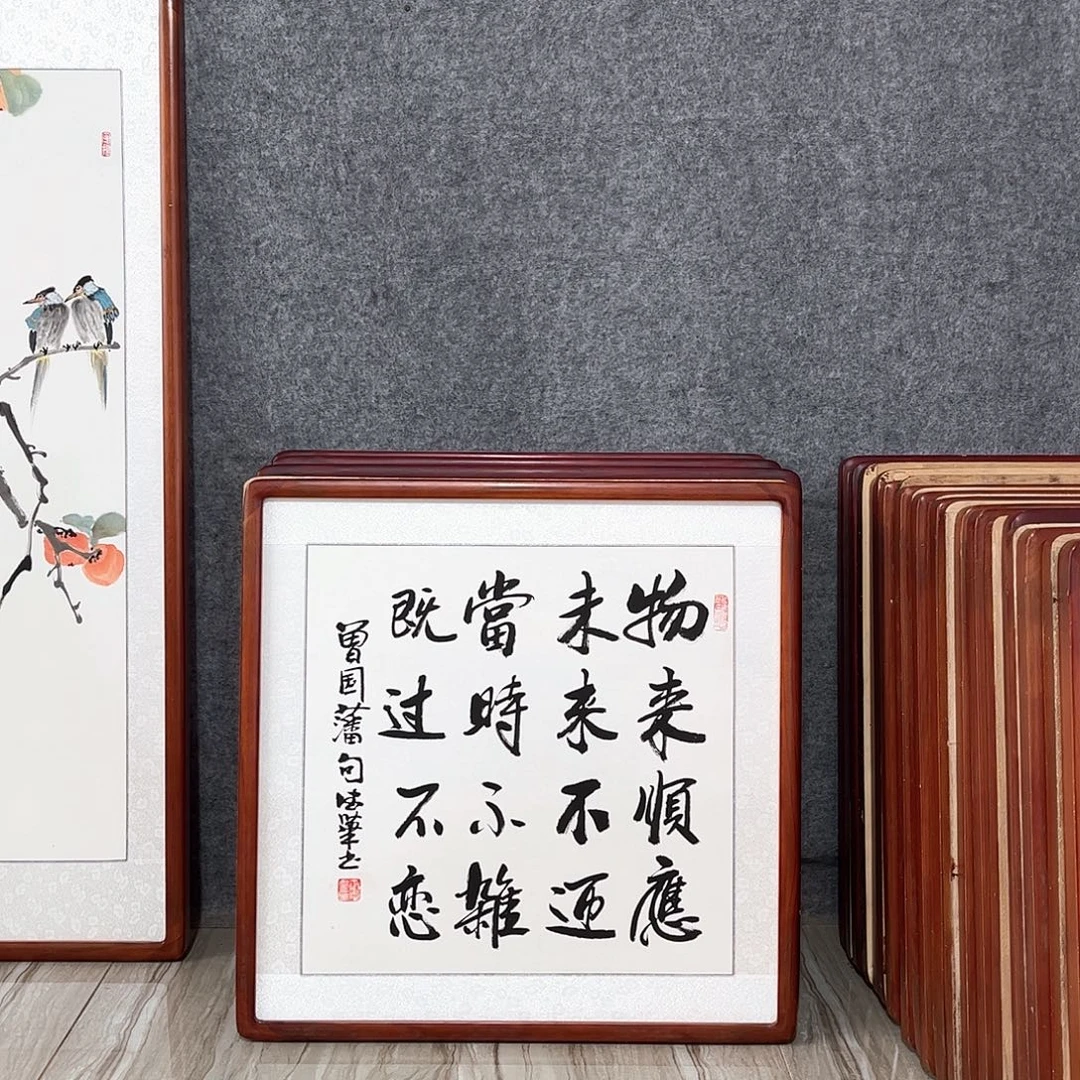 物来順應
未来不迎
當時不雜
既过不恋
曾国藩句華书